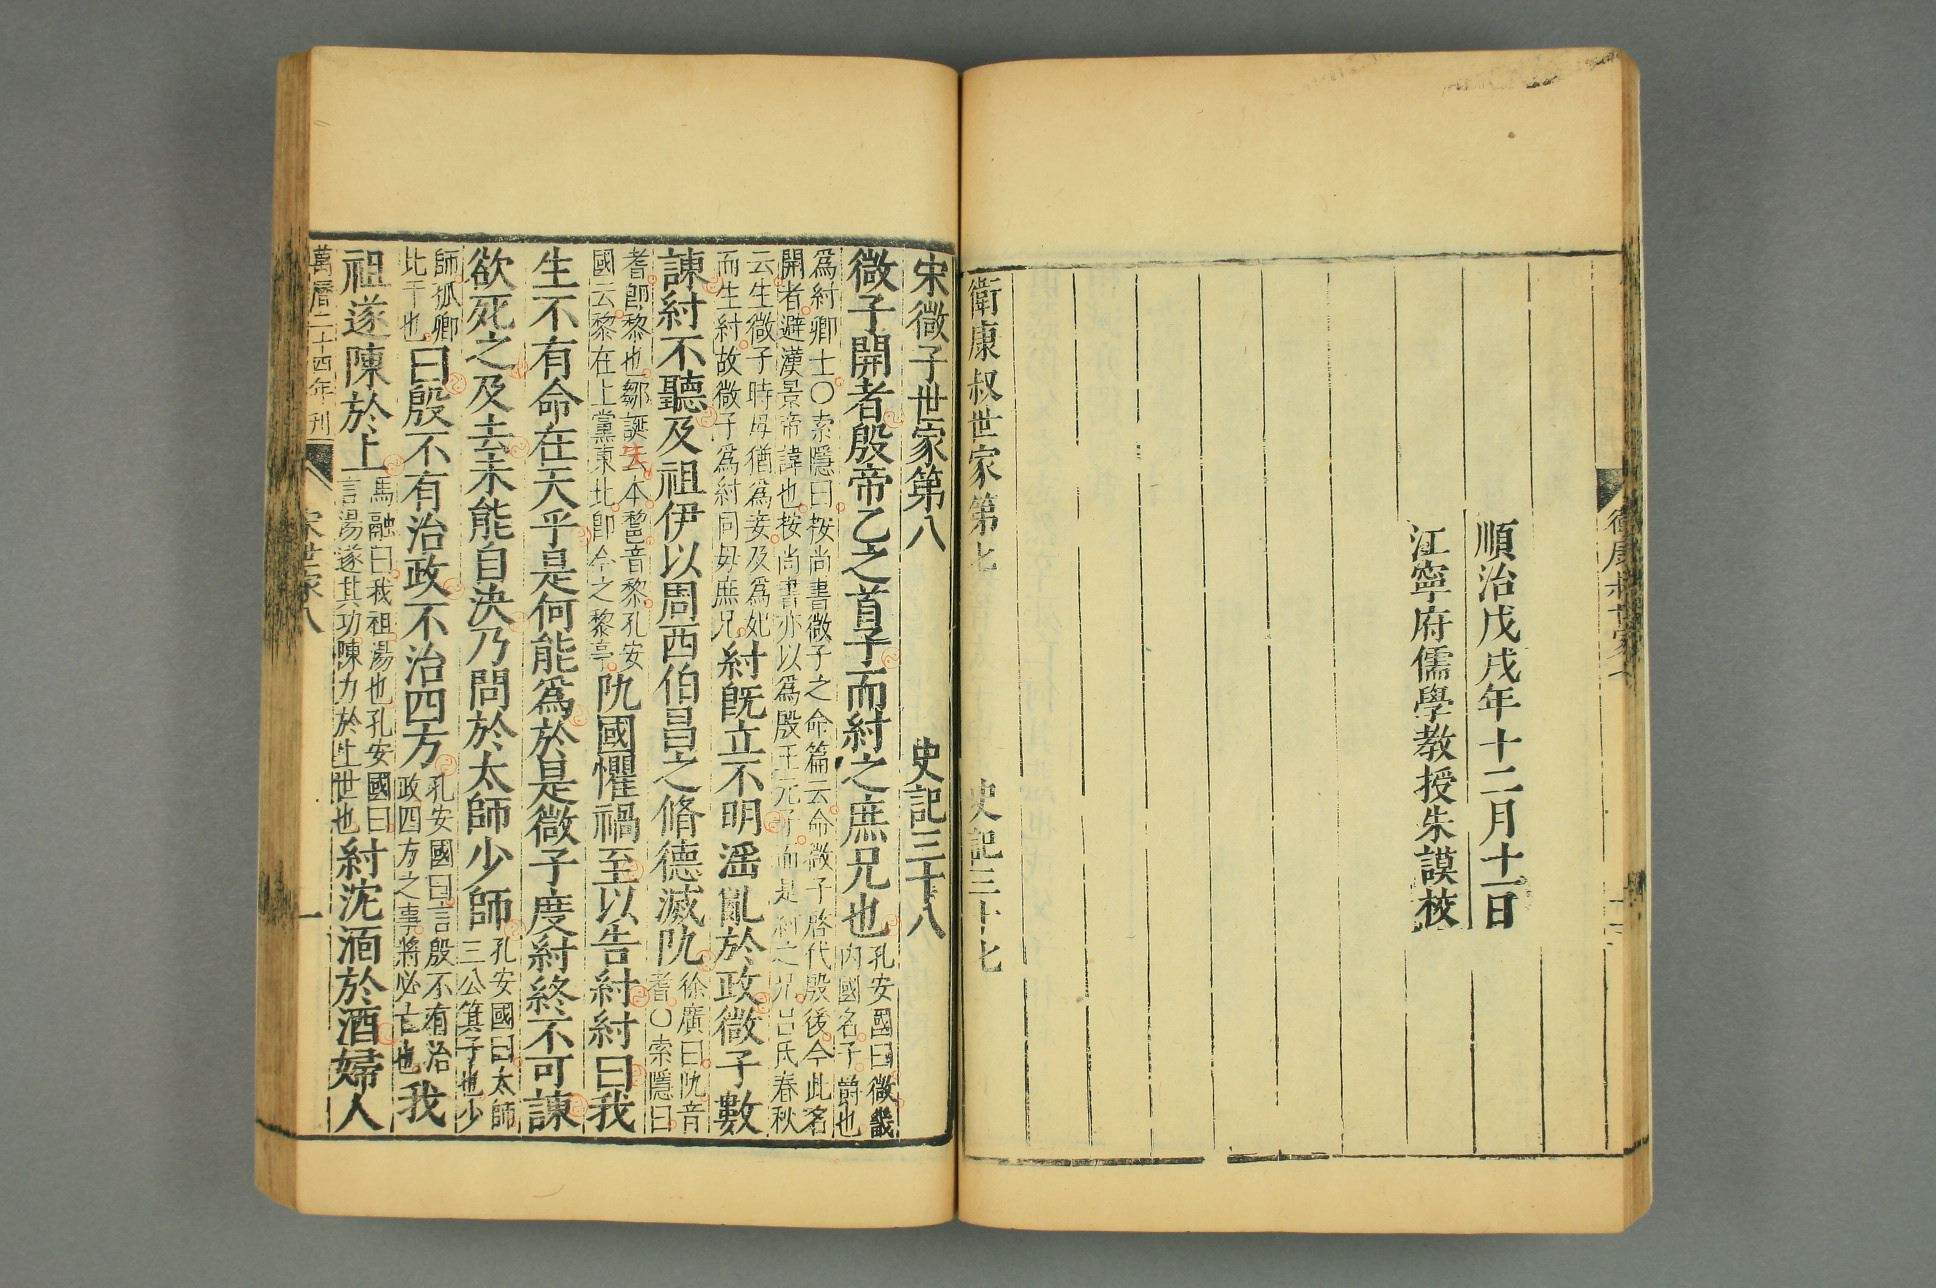 衛康叔世家七
順治戊戌年十二月十一日
江寧府儒學教授朱謨校
衛康叔世家第七 史記三十七
宋微子世家第八 史記三十八
微子開者殷帝乙之首子而紂之庶兄也孔安國曰微畿内國名子爵也
爲紂卿士○索隱曰按尚書微子之命篇云命微子啓代殷後今此名開者避漢景帝諱也按尚書亦以爲殷王元子而是紂之兄吕氏春秋
云生微子時母猶爲妾及爲妃而生紂故微子爲紂同母庶兄紂既立不明淫亂於政微子數
諫紂不聽及祖伊以周西伯昌之脩德滅阢徐廣曰阢音耆○索隱曰
耆即黎也鄒誕云本䵩音黎孔安國云黎在上黨東北即今之黎亭阢國懼禍至以告紂紂曰我
生不有命在天乎是何能爲於是微子度紂終不可諫
欲死之及去未能自決乃問於太師少師孔安國曰太師三公箕子也少
師孤卿比干也曰殷不有治政不治四方孔安國曰言殷不有治政四方之事將必亡也我
祖遂陳於上馬融曰我祖湯也孔安國曰言湯遂其功陳力於上世也紂沈湎於酒婦人
萬曆二十四年刊 宋世家八 一